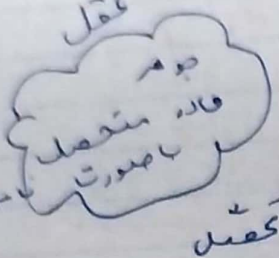 عقل
جوهر
ماده متحصل
با صورت
تعقل